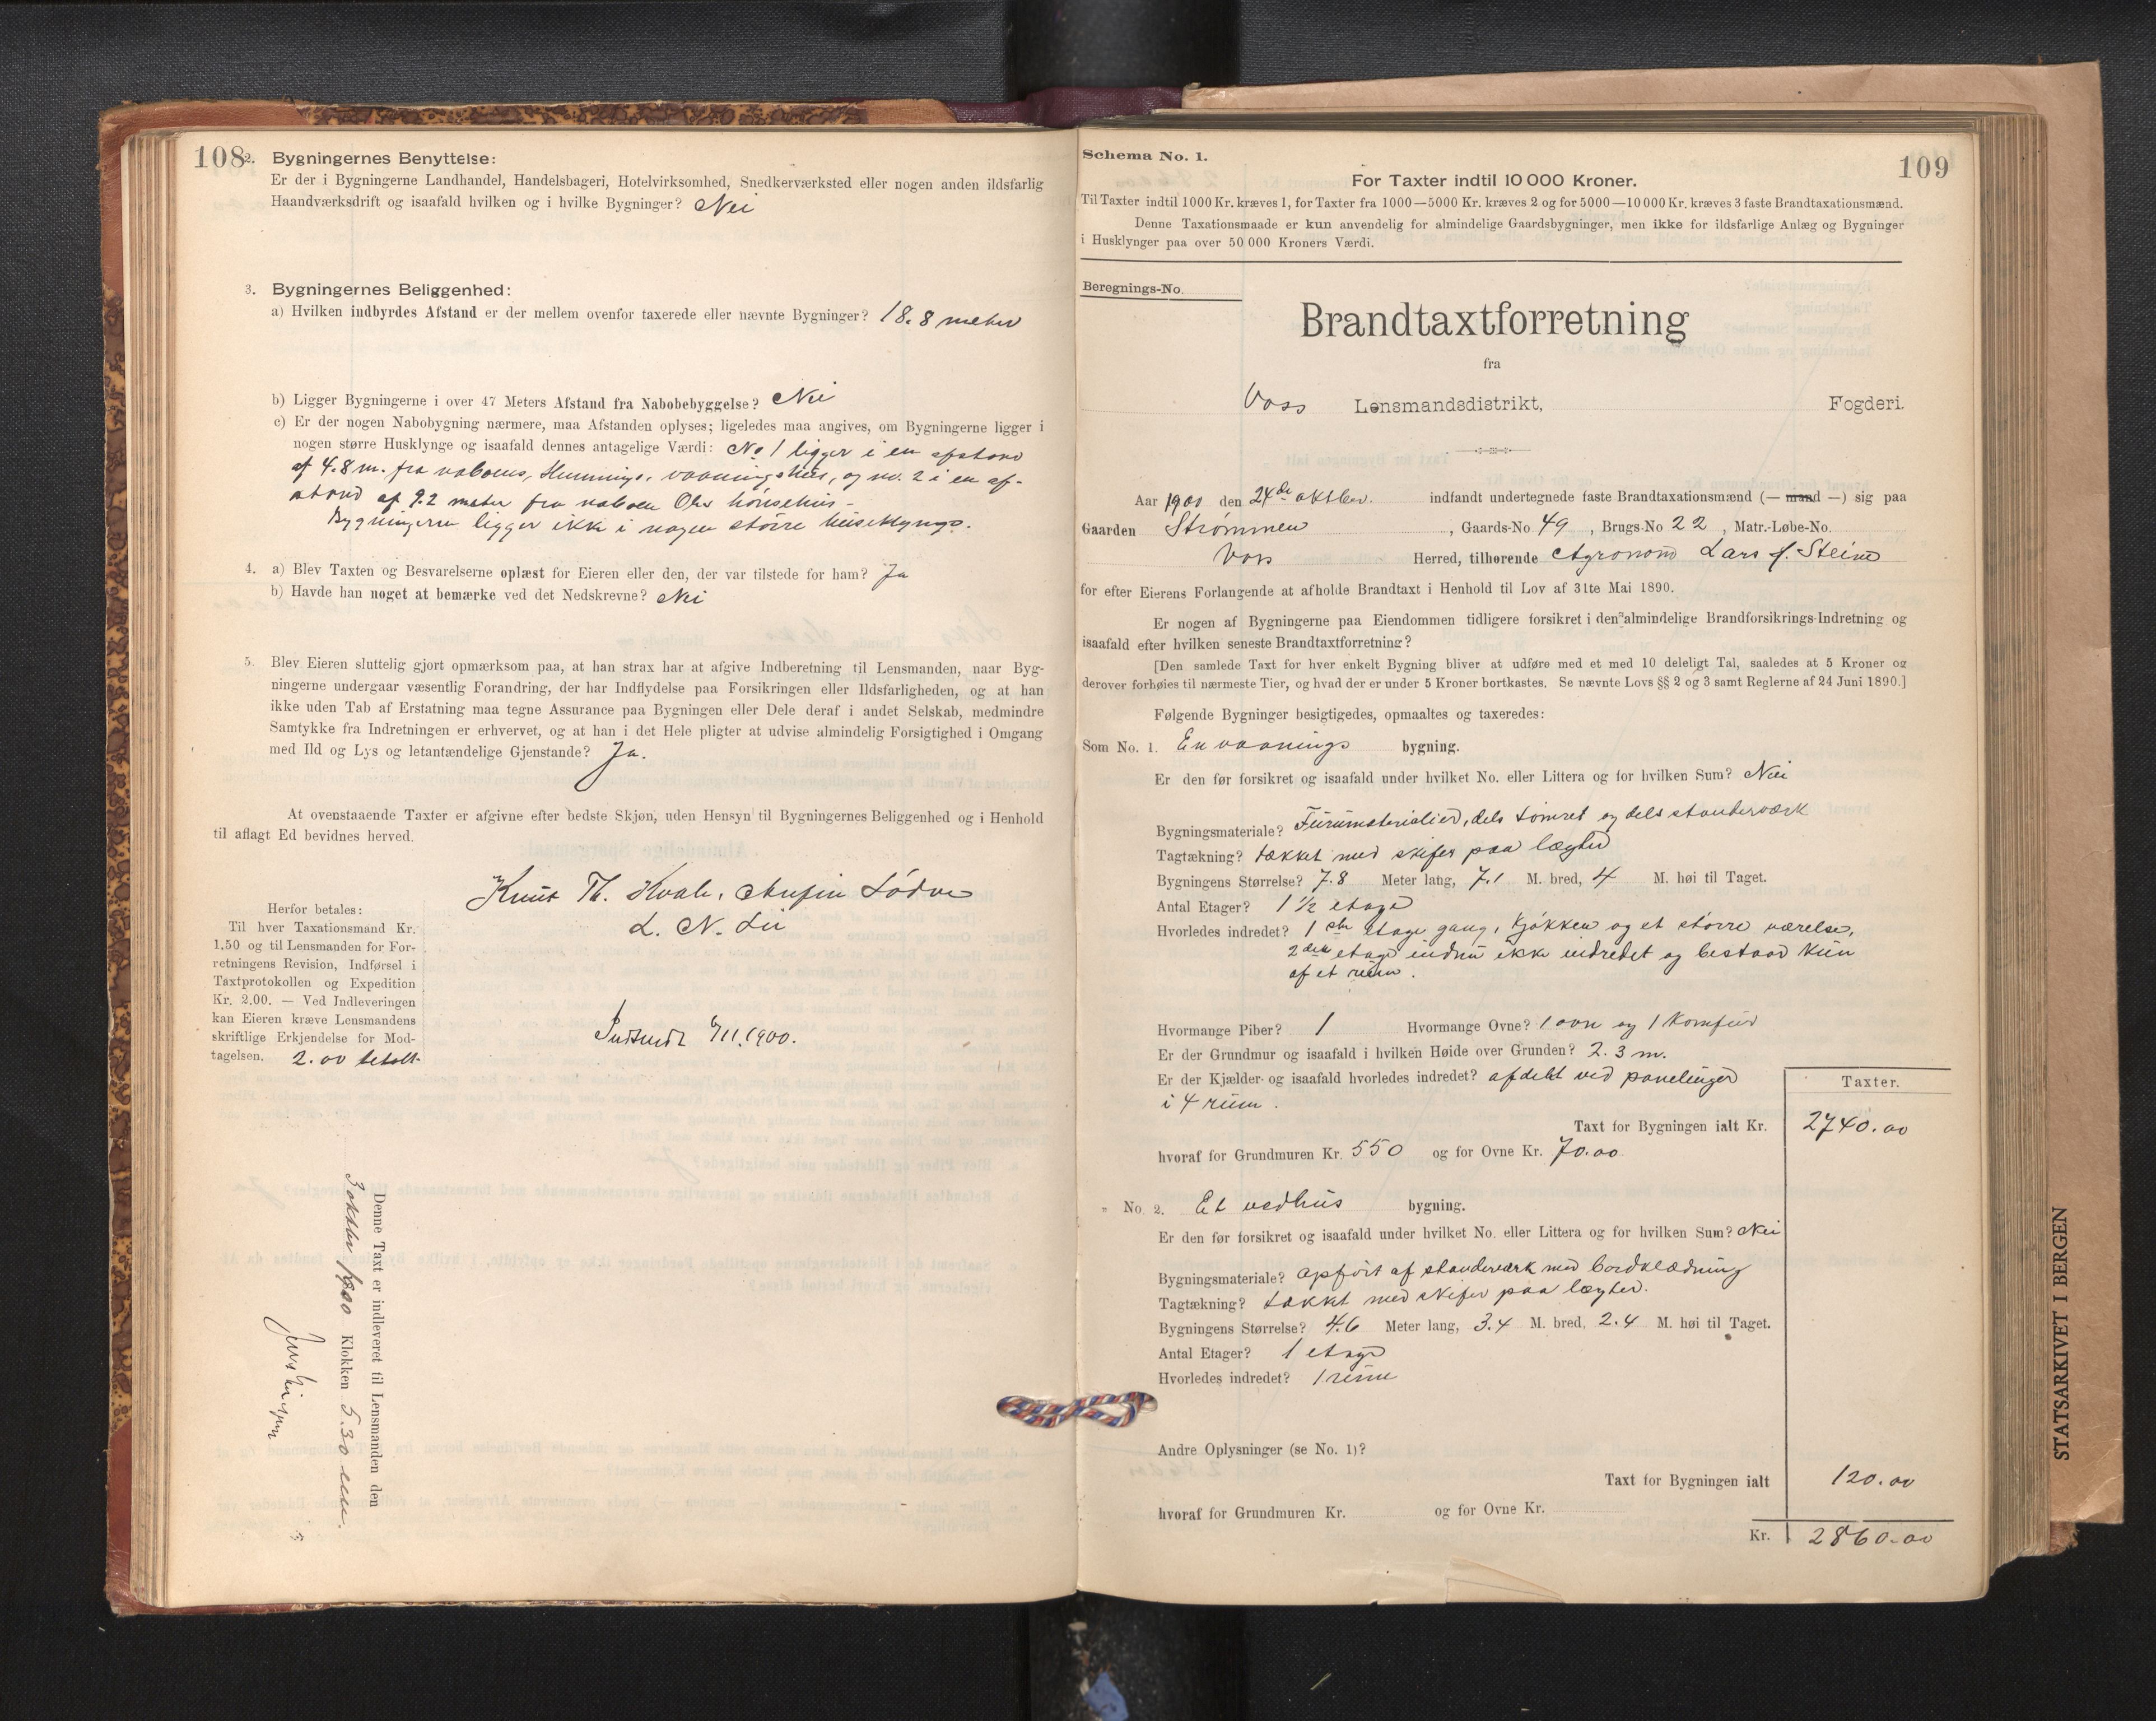 108
2. Bygningernes Benyttelse:
Er der i Bygningerne Landhandel, Handelsbageri, Hotelvirksomhed, Snedkerværksted eller nogen anden ildsfarlig
Haandværksdrift og isaafald hvilken og i hvilke Bygninger? Nei
3. Bygningernes Beliggenhed:
a) Hvilken indbyrdes Afstand er der mellem ovenfor taxerede eller nævnte Bygninger? 18.8 meter
b) Ligger Bygningerne i over 47 Meters Afstand fra Nabobebyggelse? Nei
c) Er der nogen Nabobygning nærmere, maa Afstanden oplyses; ligeledes maa angives, om Bygningerne ligger i
nogen større Husklynge og isaafald dennes antagelige Værdi: No 1 ligger i en afstand
af 4.8 m. fra naboens, Hemmings, vaaningshus, og no. 2 i en af-
stand af 9.2 meter fra naboen Ols hönsehus-
Bygningerne ligger ikke i nogen större husklynge.
4. a) Blev Taxten og Besvarelserne oplæst for Eieren eller den, der var tilstede for ham? Ja
b) Havde han noget at bemærke ved det Nedskrevne? Nei
5. Blev Eieren sluttelig gjort opmærksom paa, at han strax har at afgive Indberetning til Lensmanden, naar Byg-
ningerne undergaar væsentlig Forandring, der har Indflydelse paa Forsikringen eller Ildsfarligheden, og at han
ikke uden Tab af Erstatning maa tegne Assurance paa Bygningen eller Dele deraf i andet Selskab, medmindre
Samtykke fra Indretningen er erhvervet, og at han i det Hele pligter at udvise almindelig Forsigtighed i Omgang
med Ild og Lys og letantændelige Gjenstande? Ja.
At ovenstaaende Taxter er afgivne efter bedste Skjøn, uden Hensyn til Bygningernes Beliggenhed og i Henhold
til aflagt Ed bevidnes herved.
Knut Th. Kvale, Anfin Lödve
L. N. Lii
Herfor betales:
Til hver Taxationsmand Kr.
1,50 og til Lensmanden for For-
retningens Revision, Indførsel i
Taxtprotokollen og Expedition
Kr. 2,00. — Ved Indleveringen
kan Eieren kræve Lensmandens
skriftlige Erkjendelse for Mod-
tagelsen. 2.00 betalt
Indsendt 6/11.1900.
Denne Taxt er indleveret til Lensmanden den
3 oktbr 1900 Klokken 5.30 em.
109
Schema No. 1.
For Taxter indtil 10 000 Kroner.
Til Taxter indtil 1000 Kr. kræves 1, for Taxter fra 1000—5000 Kr. kræves 2 og for 5000—10 000 Kr. kræves 3 faste Brandtaxationsmænd.
Denne Taxationsmaade er kun anvendelig for almindelige Gaardsbygninger, men ikke for ildsfarlige Anlæg og Bygninger
i Husklynger paa over 50 000 Kroners Værdi.
Beregnings-No.
Brandtaxtforretning
fra
Voss Lensmandsdistrikt, Fogderi.
Aar 1900 den 24de oktbr. indfandt undertegnede faste Brandtaxationsmænd (— mand —) sig paa
Gaarden Strømmen, Gaards-No 49, Brugs-No 22, Matr.-Løbe-No.
Voss Herred, tilhørende Agronom Lars J. Stein
for efter Eierens Forlangende at afholde Brandtaxt i Henhold til Lov af 31te Mai 1890.
Er nogen af Bygningerne paa Eiendommen tidligere forsikret i den almindelige Brandforsikrings-Indretning og
isaafald efter hvilken seneste Brandtaxtforretning?
[Den samlede Taxt for hver enkelt Bygning bliver at udføre med et med 10 deleligt Tal, saaledes at 5 Kroner og
derover forhøies til nærmeste Tier, og hvad der er under 5 Kroner bortkastes. Se nævnte Lovs §§ 2 og 3 samt Reglerne af 24 Juni 1890.]
Følgende Bygninger besigtigedes, opmaaltes og taxeredes:
Som No. 1. En vaanings bygning.
Er den før forsikret og isaafald under hvilket No. eller Littera og for hvilken Sum? Nei
Bygningsmateriale? Furumaterialier, dels tömret og dels standerværk
Tagtækning? tækket med skifer paa lægter
Bygningens Størrelse? 7.8 Meter lang, 7.1 M. bred, 4 M. høi til Taget.
Antal Etager? 1 1/2 etage
Hvorledes indredet? 1ste etage gang, kjökken og et större værelse,
2den etage endnu ikke indredet og bestaar kun
af et rum.
Hvormange Piber? 1 Hvormange Ovne? 1 ovn og 1 komfur
Er der Grundmur og isaafald i hvilken Høide over Grunden? 2.3 m.
Er der Kjælder og isaafald hvorledes indredet? afdelt ved panelinger
i 4 rum.
Taxter.
Taxt for Bygningen ialt Kr. 2740.00
hvoraf for Grundmuren Kr. 550 og for Ovne Kr. 70.00
" No. 2. Et vedhus bygning.
Er den før forsikret og isaafald under hvilket No. eller Littera og for hvilken Sum? Nei
Bygningsmateriale? opfört af standerværk med bordklædning
Tagtækning? tækket med skifer paa lægter.
Bygningens Størrelse? 4.6 Meter lang, 3.4 M. bred, 2.4 M. høi til Taget.
Antal Etager? 1 etage
Hvorledes indredet? 1 rum
Andre Oplysninger (se No. 1)?
Taxt for Bygningen ialt 120.00
hvoraf for Grundmuren Kr. og for Ovne Kr.
Kr. 2860.00
STATSARKIVET I BERGEN